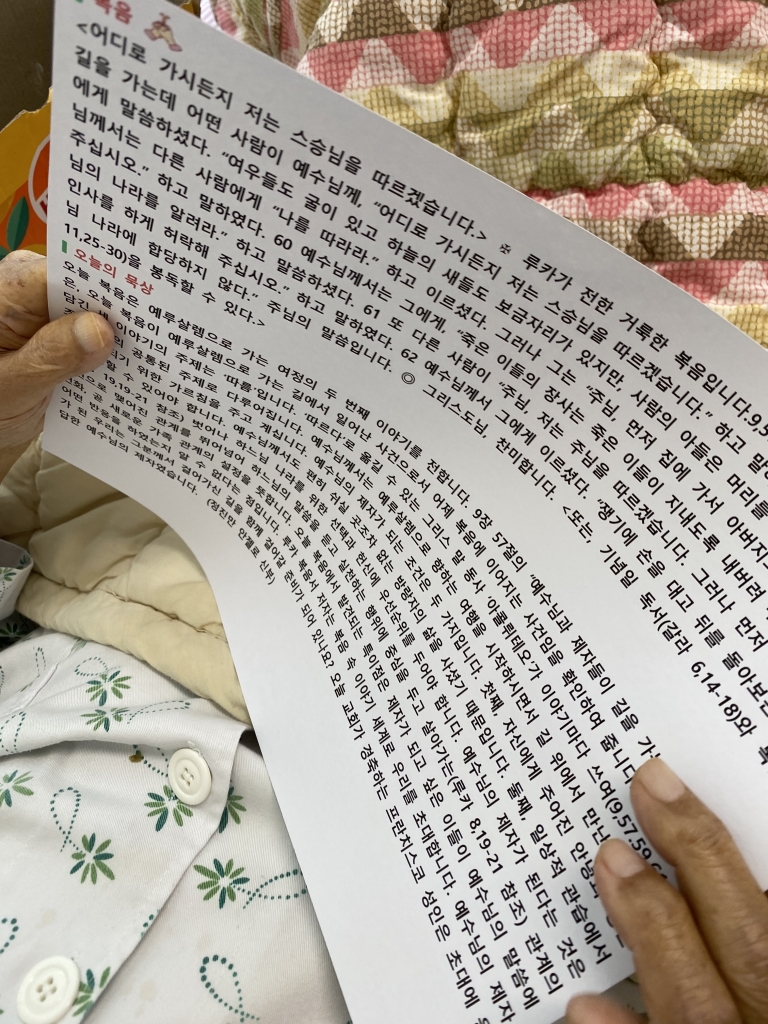 복음
<어디로 가시든지 저는 스승님을 따르겠습니다.> ✠ 루카가 전한 거룩한 복음입니다.9,5
길을 가는데 어떤 사람이 예수님께, “어디로 가시든지 저는 스승님을 따르겠습니다.” 하고 말
에게 말씀하셨다. “여우들도 굴이 있고 하늘의 새들도 보금자리가 있지만, 사람의 아들은 머리를
님께서는 다른 사람에게 “나를 따라라.” 하고 이르셨다. 그러나 그는 “주님, 먼저 집에 가서 아버지
주십시오.” 하고 말하였다. 60 예수님께서는 그에게, “죽은 이들의 장사는 죽은 이들이 지내도록 내버려
님의 나라를 알려라.” 하고 말씀하셨다. 61 또 다른 사람이 “주님, 저는 주님을 따르겠습니다. 그러나 먼저
인사를 하게 허락해 주십시오.” 하고 말하였다. 62 예수님께서 그에게 이르셨다. “쟁기에 손을 대고 뒤를 돌아보는
님 나라에 합당하지 않다.” 주님의 말씀입니다. ◎ 그리스도님, 찬미합니다. <또는, 기념일 독서(갈라 6,14-18)와 복
11,25-30)을 봉독할 수 있다.>
오늘의 묵상
오늘 복음은 예루살렘으로 가는 여정의 두 번째 이야기를 전합니다. 9장 57절의 ‘예수님과 제자들이 길을 가
은, 오늘 복음이 예루살렘으로 가는 길에서 일어난 사건으로서 어제 복음에 이어지는 사건임을 확인하여 줍니다
담긴 세 이야기의 주제는 ‘따름’입니다. ‘따르다’로 옮길 수 있는 그리스 말 동사 ‘아콜뤼테오’가 이야기마다 쓰여(9,57.59.6
공통된 주제로 다루어집니다. 예수님께서는 예루살렘으로 향하는 여행을 시작하시면서 길 위에서 만난
되기 위한 가르침을 주고 계십니다. 예수님의 제자가 되는 조건은 두 가지입니다. 첫째, 자신에게 주어진 안정
할 수 있어야 합니다. 예수님께서도 편히 쉬실 곳조차 없는 방랑자의 삶을 사셨기 때문입니다. 둘째, 일상적 관습에서
벗어나 하느님 나라를 위한 선택과 헌신에 우선순위를 두어야 합니다. 예수님의 제자가 된다는 것은
19,19.21 참조) 관계를 뛰어넘어 하느님의 말씀을 듣고 실천하는 행위에 중심을 두고 살아가는(루카 8,19-21 참조) 관계의
곧 새로운 가족 관계의 설정을 뜻합니다. 오늘 복음에서 발견되는 특이점은 제자가 되고 싶은 이들이 예수님의 말씀에
어떤 반응을 하였는지 알 수 없다는 점입니다. 루카 복음서 저자는 복음 속 이야기 세계로 우리를 초대합니다. 예수님의 제자
가 된 우리는 그분께서 걸어가신 길을 함께 걸어갈 준비가 되어 있나요? 오늘 교회가 경축하는 프란치스코 성인은 초대에
답한 예수님의 제자였습니다. (정진만 안젤로 신부)